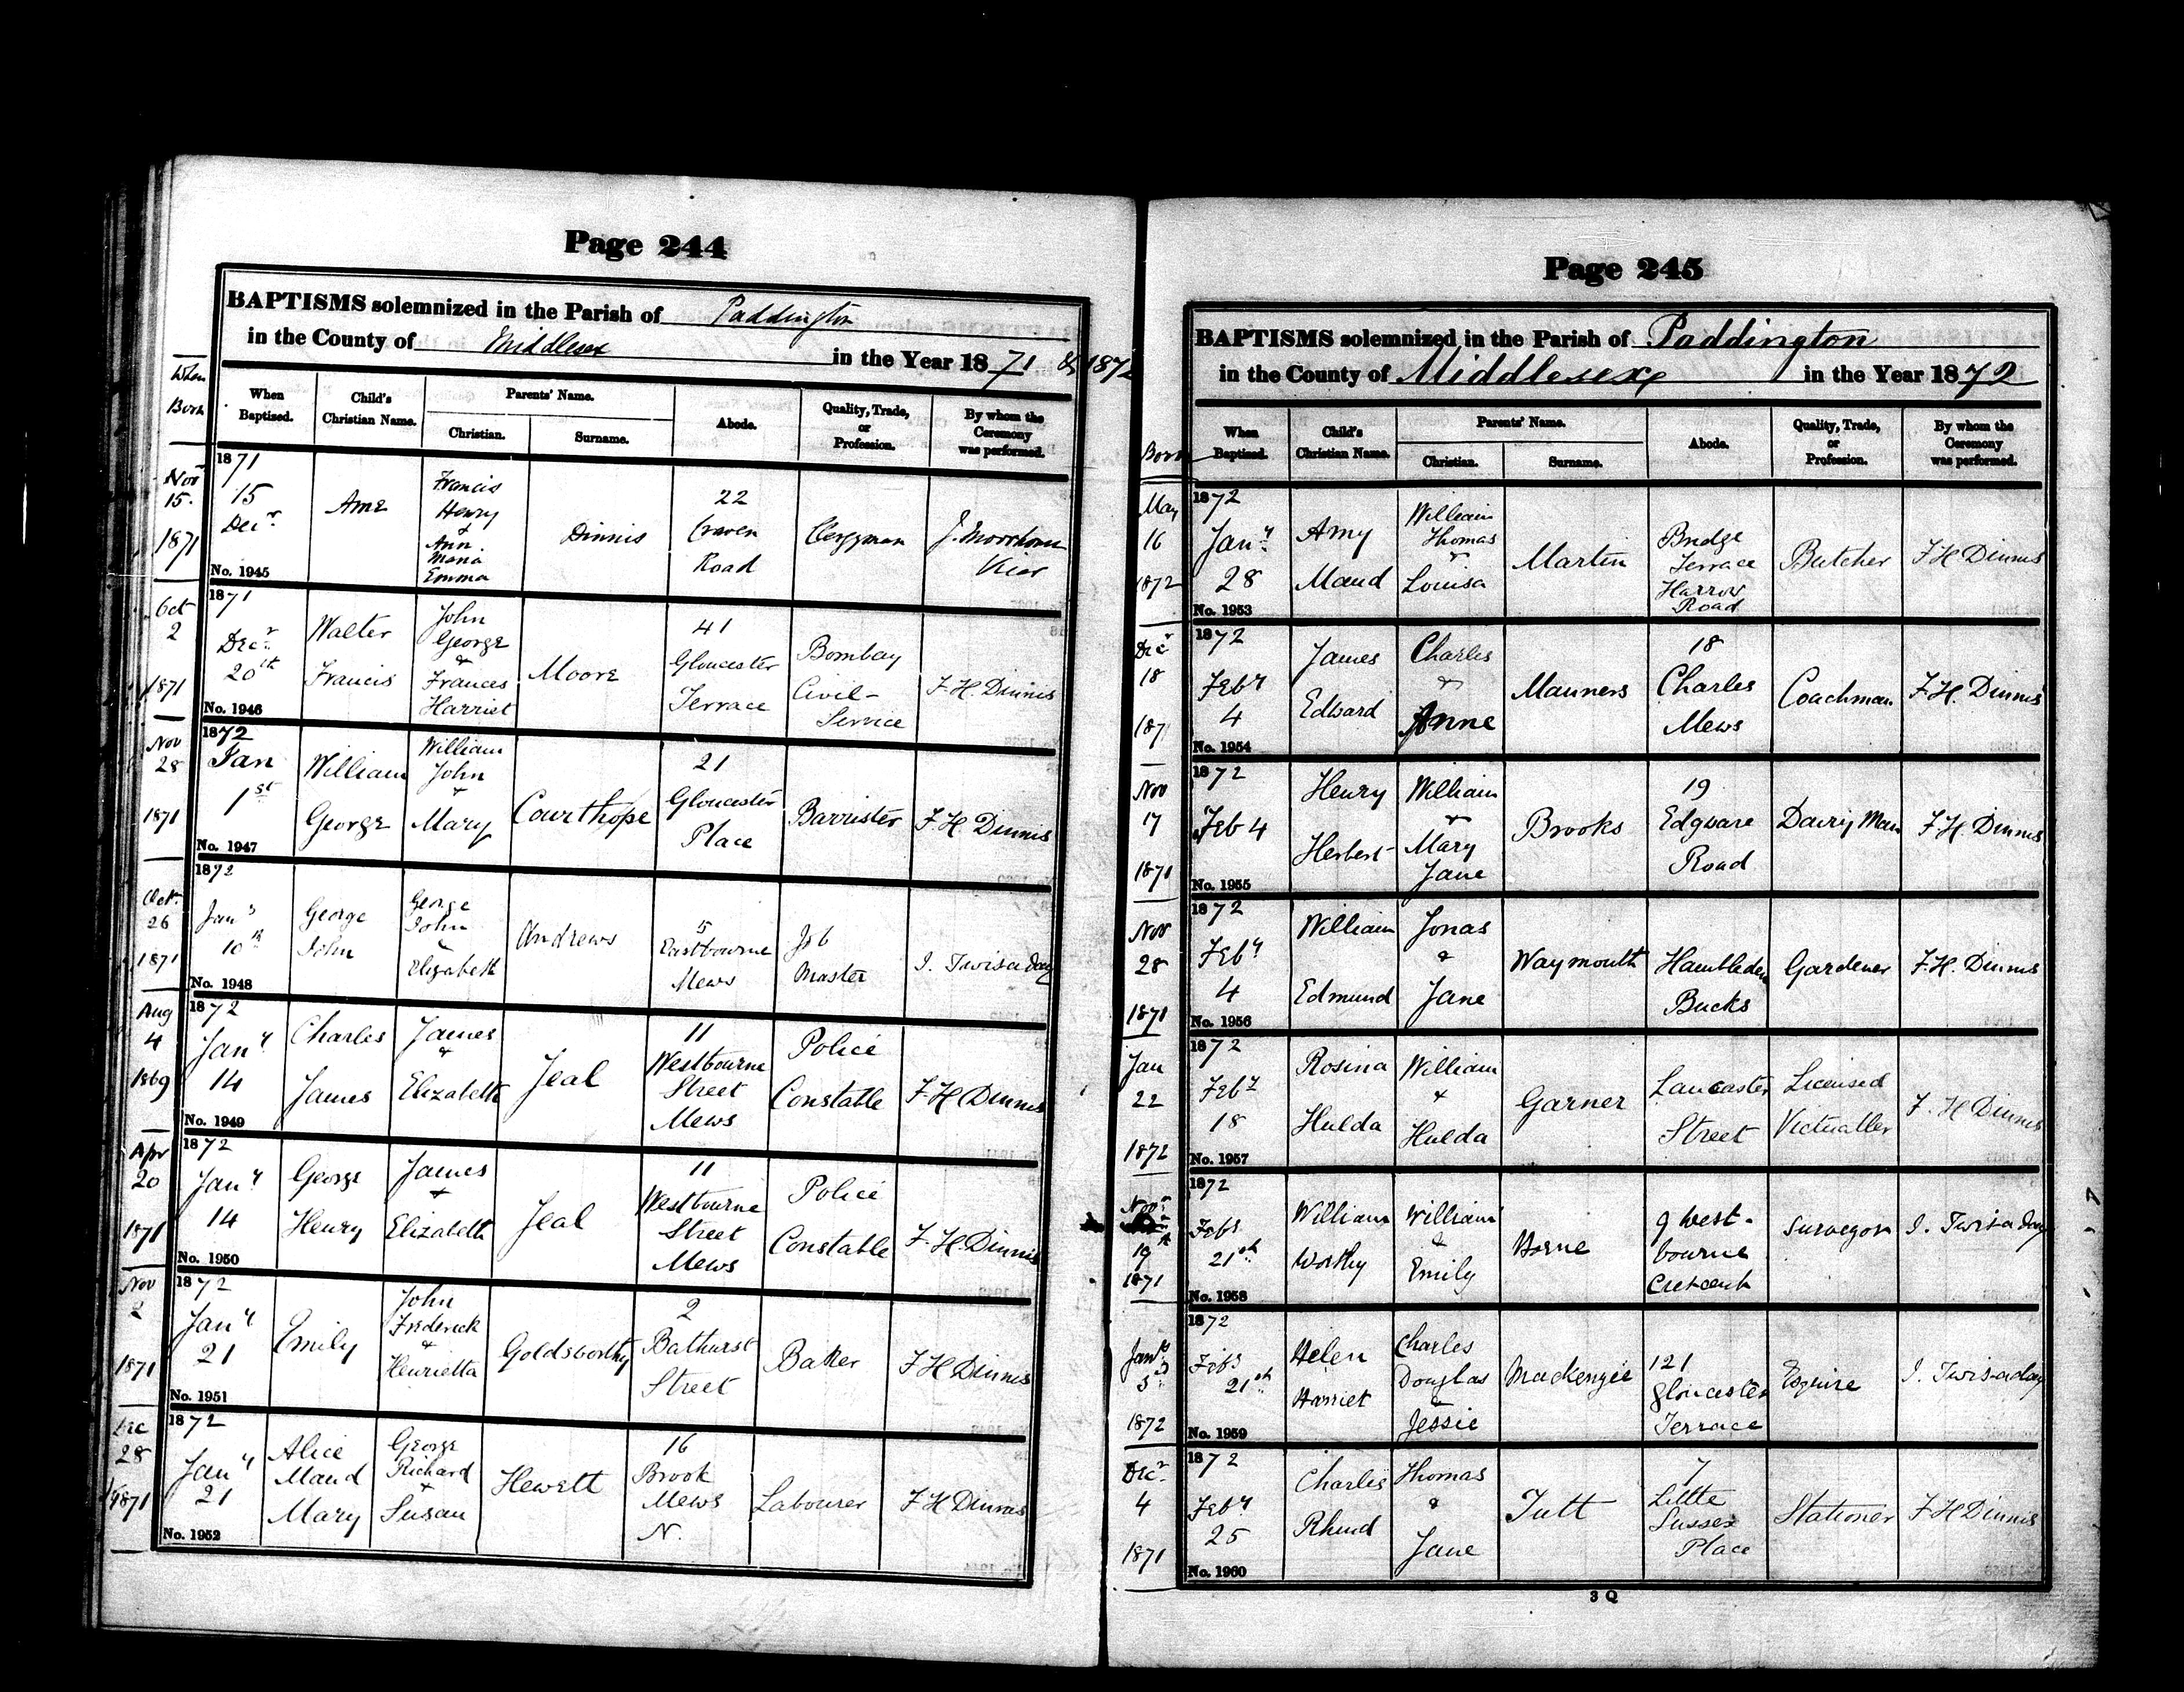 Page 244
BAPTISMS solemnized in the Parish of Paddington
in the County of Middlesex in the Year 1871 & 1872
When Born
When Baptised.
Child's Christian Name.
Parents' Name.
Christian.
Surname.
Abode.
Quality, Trade, or Profession.
By whom the Ceremony was performed.
Nov 15. 1871
1871 15 Decr.
No. 1945
Francis Henry & Ann Maria Emma
Dinnis
22 Craven Road
Clergyman
Oct 2 1871
1871 Decr. 20th
No. 1946
Walter Francis
John George & Frances Harriet
Moore
41 Gloucester Terrace
Bombay Civil- Service
F. H. Dinnis
Nov 28 1871
1872 Jan 1st
No. 1947
William George
William John & Mary
Courthope
21 Gloucester Place
Barrister
F. H. Dinnis
Oct. 26 1871
1872 Jany 10th
No. 1948
George John
George John & Elizabeth
Andrews
5 Eastbourne Mews
Job Master
I. Twisaday
Aug 4 1869
1872 Jany 14
No. 1949
Charles James
James & Elizabeth
Jeal
11 Westbourne Street Mews
Police Constable
F. H. Dinnis
Apr 20 1871
1872 Jany 14
No. 1950
George Henry
James & Elizabeth
Jeal
11 Westbourne Street Mews
Police Constable
F. H. Dinnis
Nov 2 1871
1872 Jany 21
No. 1951
Emily
John Frederick & Henrietta
Goldsworthy
2 Bathurst Street
Baker
F H Dinnis
Dec 28 1871
1872 Jany 21
No. 1952
Alice Maud Mary
George Richard & Susan
Hewett
16 Brook Mews N.
Labourer
F H Dinnis
Page 245
BAPTISMS solemnized in the Parish of Paddington
in the County of Middlesex in the Year 1872
Born
When Baptised.
Child's Christian Name.
Parents' Name.
Christian.
Surname.
Abode.
Quality, Trade, or Profession.
By whom the Ceremony was performed.
May 16 1872
1872 Jany. 28
No. 1953
Amy Maud
William Thomas & Louisa
Martin
Bridge Terrace Harrow Road
Butcher
F H Dinnis
Decr 18 1871
1872 Feby 4
No. 1954
James Edward
Charles & Anne
Manners
18 Charles Mews
Coachman
F. H. Dinnis
Nov 17 1871
1872 Feb 4
No. 1955
Henry Herbert
William & Mary Jane
Brooks
19 Edgware Road
Dairy Man
F. H. Dinnis
Nov 28 1871
1872 Feby 4
No. 1956
William Edmund
Jonas & Jane
Waymouth
Hambleden Bucks
Gardener
F. H. Dinnis
Jan 22 1872
1872 Feby 18
No. 1957
Rosina Hulda
William & Hulda
Garner
Lancaster Street
Licensed Victualler
F. H Dinnis
Novr 19th 1871
1872 Feby 21st
No. 1958
William Worthy
William & Emily
Horne
9 West- bourne Crescent
Surveyor
I. Twisaday
Jany 3rd 1872
1872 Feby 21st
No. 1959
Helen Harriet
Charles Douglas & Jessie
Mackenzie
121 Gloucester Terrace
Esquire
I. Twisaday
Decr 4 1871
1872 Feby 25
No. 1960
Charles
Thomas & Jane
Tutt
7 Little Sussex Place
Stationer
F H Dinnis
3 Q